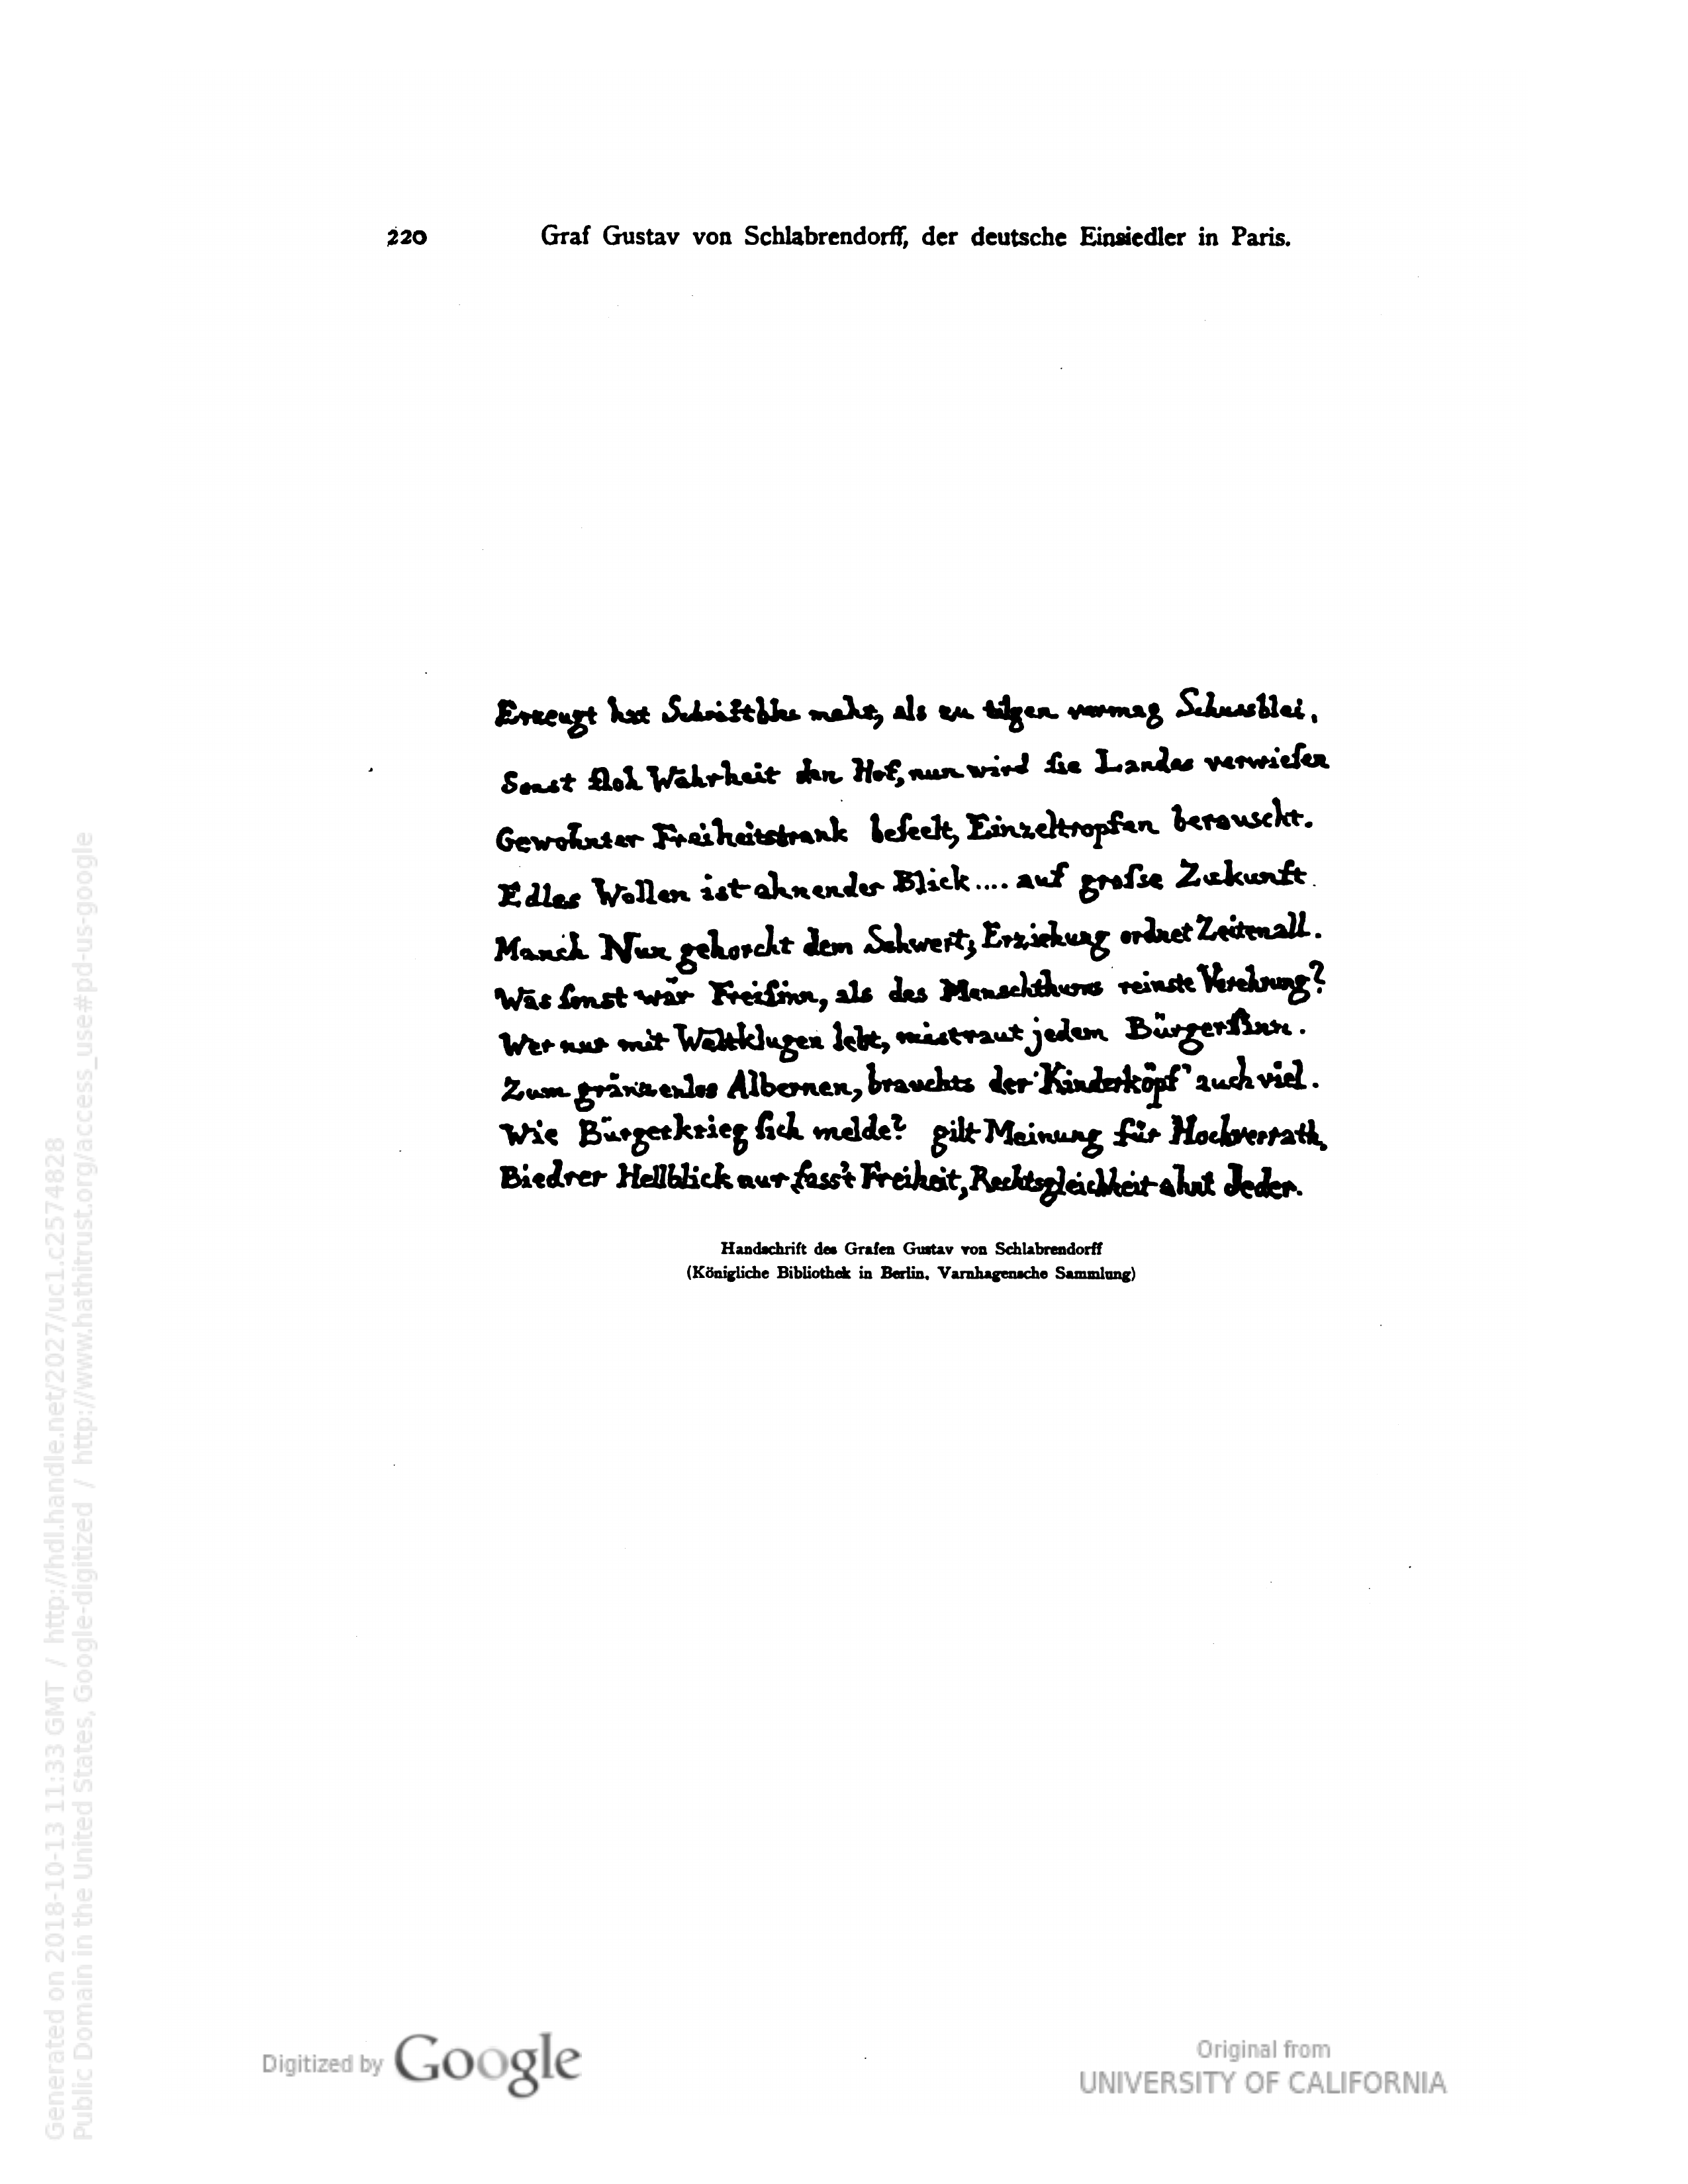 220 Graf Gustav von Schlabrendorff, der deutsche Einsiedler in Paris.
Erzeugt hat Schriftblei mehr, als zu tilgen vermag Schussblei,
Sonst floh Wahrheit den Hof, nun wird sie Landes verwieſen
Gewohnter Freiheitstrank beſeelt, Einzeltropfen berauscht.
Edles Wollen ist ahnender Blick.... auf groſse Zukunft.
Manch Nun gehorcht dem Schwert; Erziehung ordnet Zeitenall.
Was ſonst wär Freiſinn, als des Menschthums reinste Verehrung?
Wer nur mit Weltklugen lebt, mistraut jedem Bürgerſinn.
Zum gränzenlos Albernen, brauchts der 'Kinderköpf' auch viel.
Wie Bürgerkrieg ſich melde? gilt Meinung für Hochverrath,
Biedrer Hellblick nur fass't Freiheit, Rechtsgleichheit ahnt Jeder.
Handschrift des Grafen Gustav von Schlabrendorff
(Königliche Bibliothek in Berlin, Varnhagensche Sammlung)
Generated on 2018-10-13 11:33 GMT / http://hdl.handle.net/2027/uc1.c2574828
Public Domain in the United States, Google-digitized / http://www.hathitrust.org/access_use#pd-us-google
Digitized by Google
Original from
UNIVERSITY OF CALIFORNIA